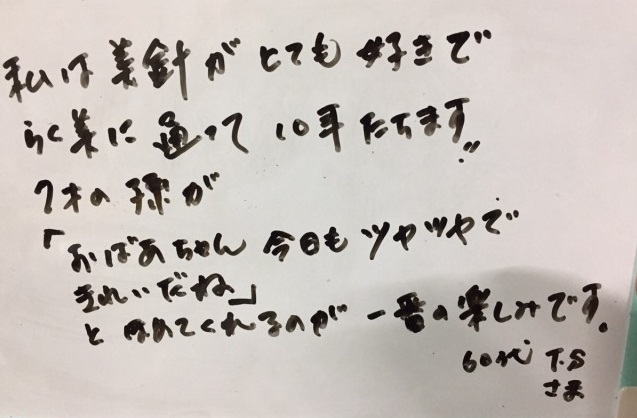 私は美針がとても好きで
らく美に通って10年たちます!!
7才の孫が
「おばあちゃん 今日もツヤツヤで
きれいだね」
とほめてくれるのが 一番の楽しみです。
60代 T.S
さま